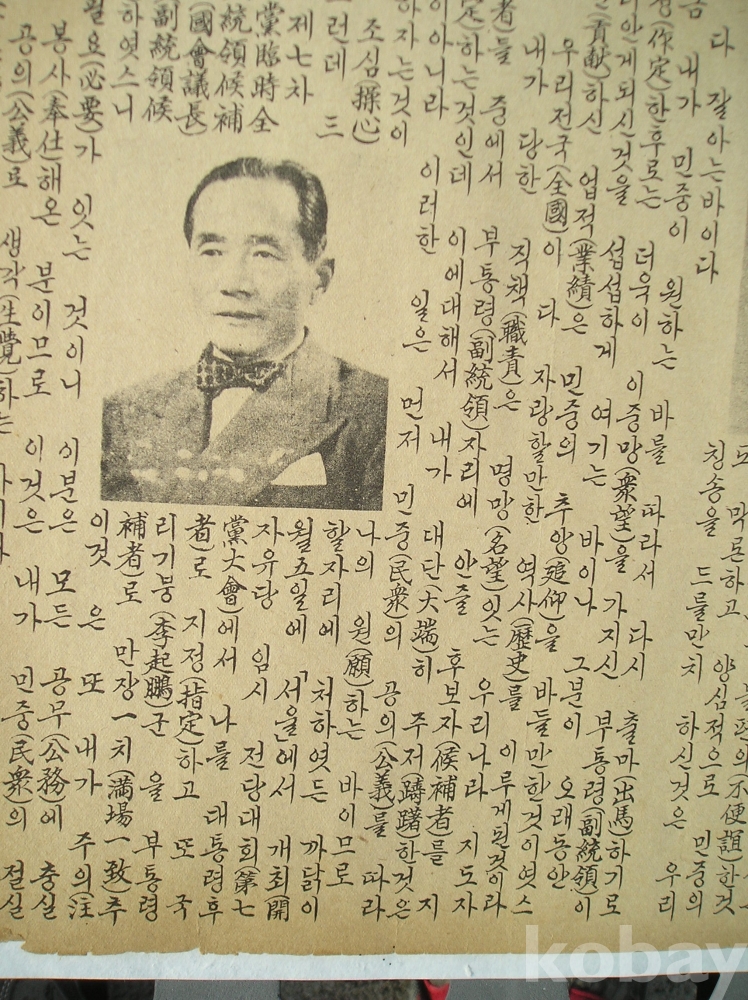 막론하고, 양심적으로 민중의
칭송을 드믈만치 하신것은 우리
다 잘아는바이다
내가 민중이 원하는 바를 따라서 다시 출마(出馬)하기로
(作定)한후로는 더욱이 이중망(衆望)을 가지신 부통령(副統領)이
안게되신것을 섭섭하게 여기는 바이나 그분이 오래동안
(貢献)하신 업적(業績)은 민중의 추앙(追仰)을 바들만한것이엿스
우리전국(全國)이 다 자랑할만한 역사(歷史)를 이루게된것이라
내가 당한 직책(職責)은 명망(名望)잇는 우리나라 지도자
者)들 중에서 부통령(副統領)자리에 안즐 후보자(候補者)를 지
정하는것인데 이에대해서 내가 대단(大端)히 주저(躊躇)한것은
이아니라 이러한 일은 먼저 민중(民衆)의 공의(公義)를 따라
하자는것이 나의 원(願)하는 바이므로
조심(操心)할자리에 처하엿든 까닭이
런데 三월五일에 「서울」에서 개최(開
제七차 자유당 임시 전당대회(第七
黨臨時全黨大會)에서 나를 대통령후
統領候補者)로 지정(指定)하고 또 국
(國會議長)리기붕(李起鵬)군을 부통령
副統領候補者)로 만장一치(満場一致)추
하엿스니 이것은 또 내가 주의(注
필요(必要)가 잇는 것이니 이분은 모든 공무(公務)에 충실
봉사(奉仕)해온 분이므로 이것은 내가 민중(民衆)의 절실
공의(公義)로 생각(生覺)하는
kobay